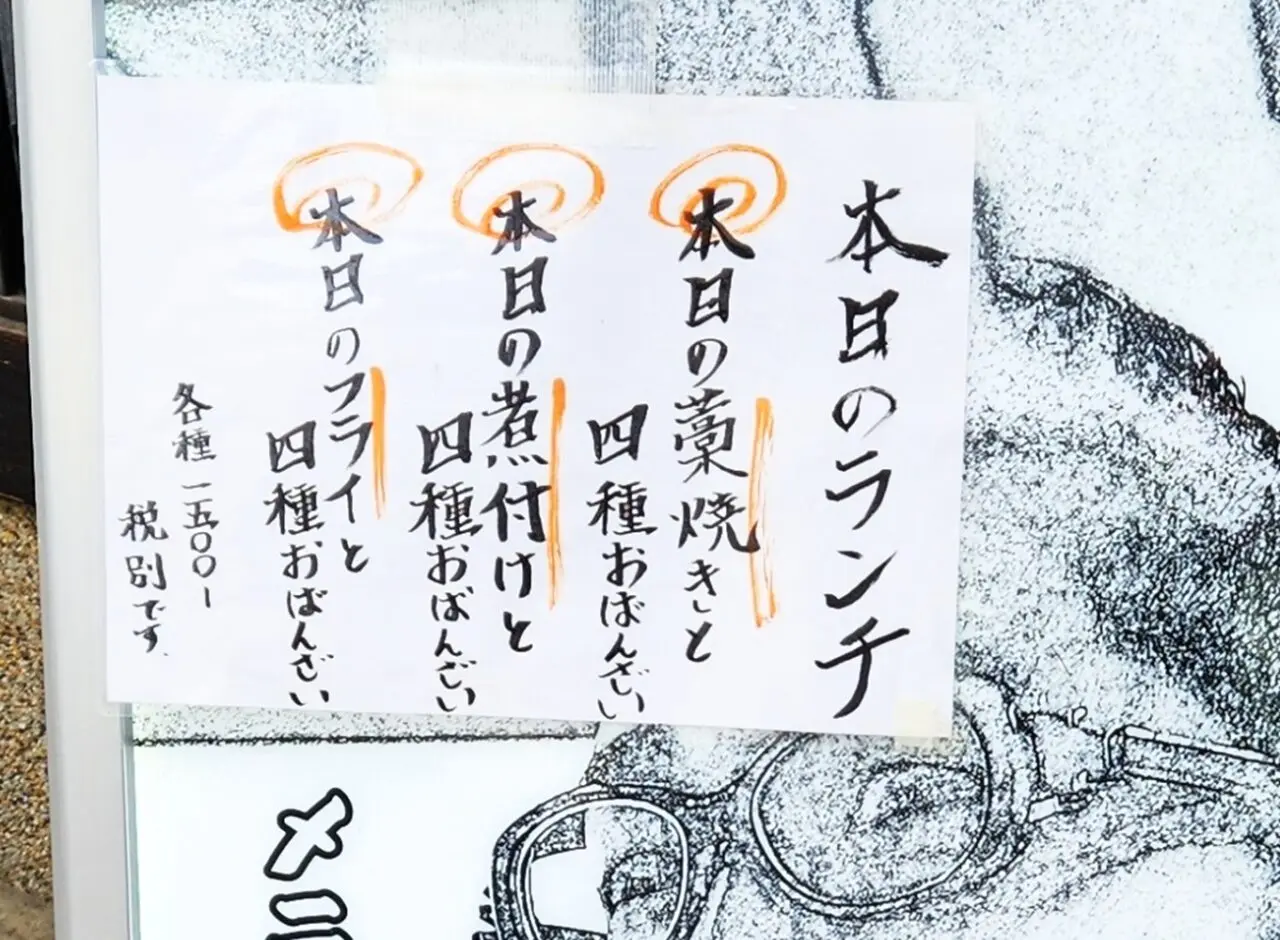 本日のランチ
本日の藁焼きと
四種おばんざい
本日の煮付けと
四種おばんざい
本日のフライと
四種おばんざい
各種一五〇〇ー
税別です.
メニ